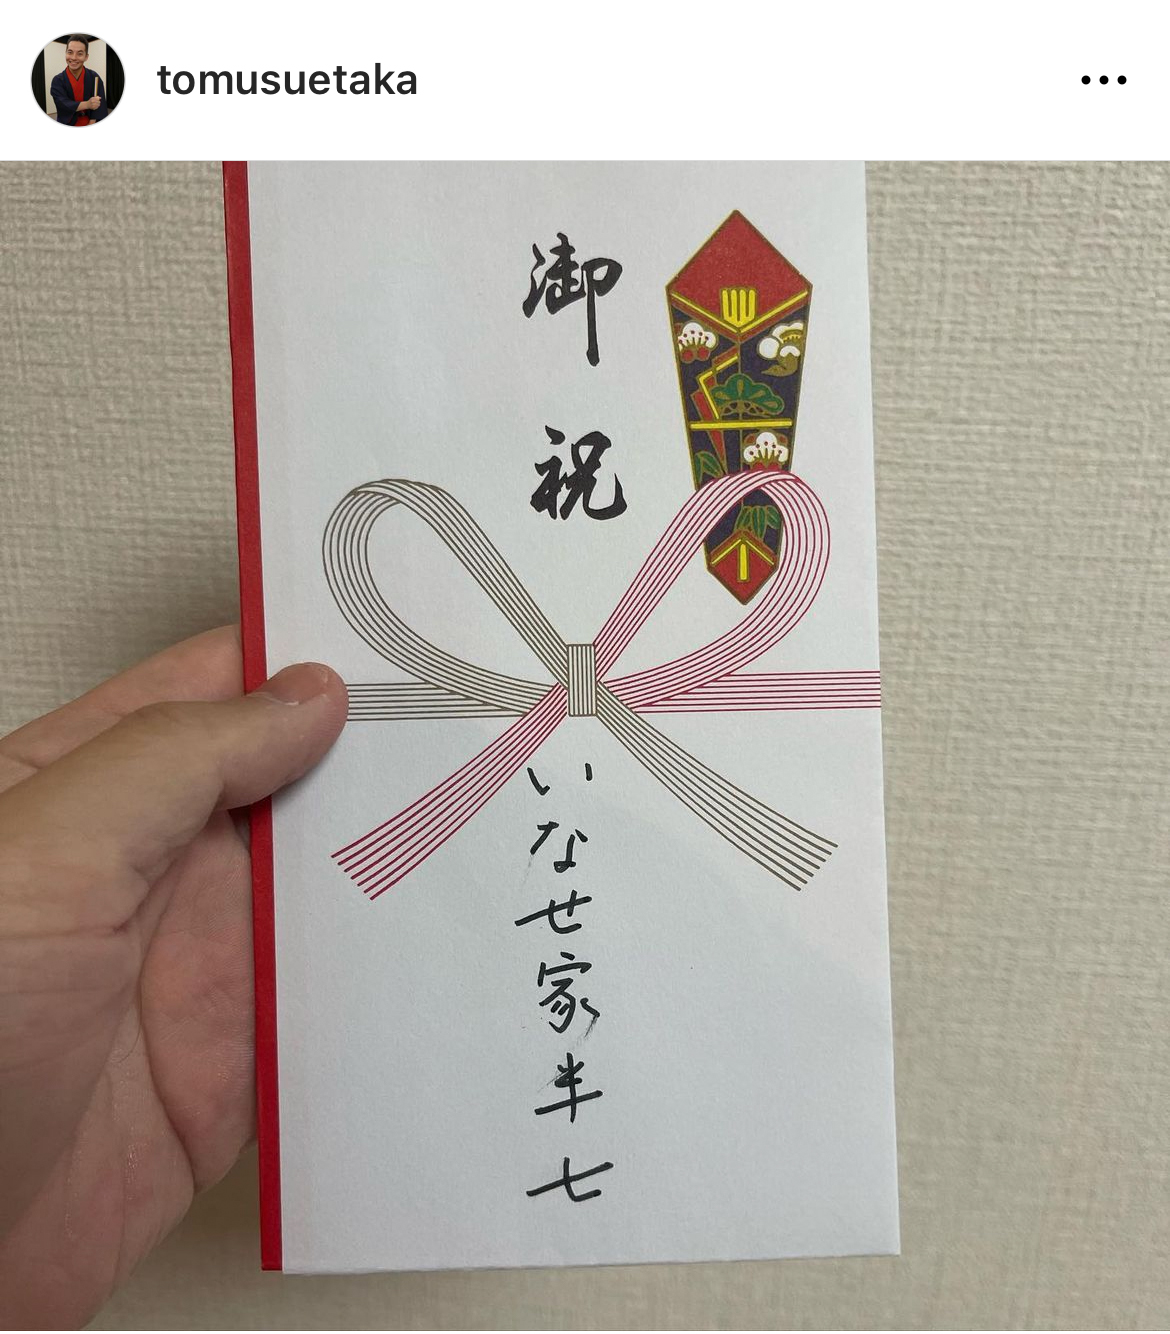 tomusuetaka
御祝
いなせ家半七